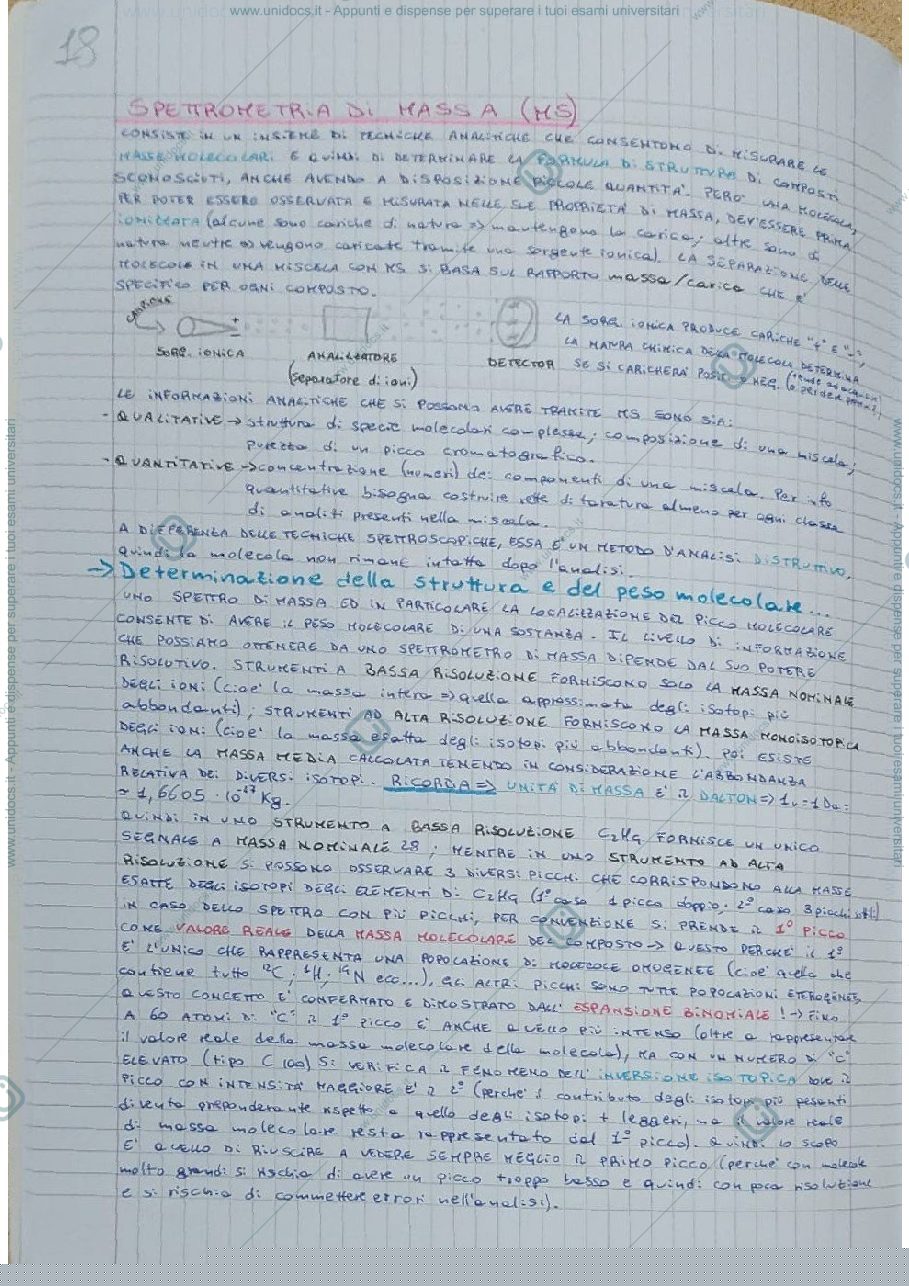 www.unidocs.it - Appunti e dispense per superare i tuoi esami universitari
18
SPETTROMETRIA DI MASSA (MS)
CONSISTE IN UN INSIEME DI TECNICHE ANALITICHE CHE CONSENTONO DI MISURARE LE
MASSE MOLECOLARI E QUINDI DI DETERMINARE LA FORMULA DI STRUTTURA DI COMPOSTI
SCONOSCIUTI, ANCHE AVENDO A DISPOSIZIONE PICCOLE QUANTITA'. PERO' UNA MOLECOLA,
PER POTER ESSERE OSSERVATA E MISURATA NELLE SUE PROPRIETA' DI MASSA, DEV'ESSERE PRIMA
IONIZZATA (alcune sono cariche di natura => mantengono la carica; altre sono di
natura neutre => vengono caricate tramite una sorgente ionica). LA SEPARAZIONE DELLE
MOLECOLE IN UNA MISCELA CON MS SI BASA SUL RAPPORTO massa/carica CHE E'
SPECIFICO PER OGNI COMPOSTO.
CAMPIONE
SORG. IONICA
ANALIZZATORE
(separatore di ioni)
DETECTOR
LA SORG. IONICA PRODUCE CARICHE "+" E "-",
LA NATURA CHIMICA DELLA MOLECOLA DETERMINA
SE SI CARICHERA' POSIT. O NEG.
LE INFORMAZIONI ANALITICHE CHE SI POSSONO AVERE TRAMITE MS SONO SIA:
- QUALITATIVE → struttura di specie molecolari complesse; composizione di una miscela;
purezza di un picco cromatografico.
- QUANTITATIVE → concentrazione (numeri) dei componenti di una miscela. Per info
quantitative bisogna costruire rette di taratura almeno per ogni classe
di analiti presenti nella miscela.
A DIFFERENZA DELLE TECNICHE SPETTROSCOPICHE, ESSA E' UN METODO D'ANALISI DISTRUTTIVO,
quindi la molecola non rimane intatta dopo l'analisi.
→ Determinazione della struttura e del peso molecolare...
UNO SPETTRO DI MASSA ED IN PARTICOLARE LA LOCALIZZAZIONE DEL PICCO MOLECOLARE
CONSENTE DI AVERE IL PESO MOLECOLARE DI UNA SOSTANZA. IL LIVELLO DI INFORMAZIONE
CHE POSSIAMO OTTENERE DA UNO SPETTROMETRO DI MASSA DIPENDE DAL SUO POTERE
RISOLUTIVO. STRUMENTI A BASSA RISOLUZIONE FORNISCONO SOLO LA MASSA NOMINALE
DEGLI IONI (cioe' la massa intera => quella approssimata degli isotopi più
abbondanti); STRUMENTI AD ALTA RISOLUZIONE FORNISCONO LA MASSA MONOISOTOPICA
DEGLI IONI (cioe' la massa esatta degli isotopi più abbondanti). POI ESISTE
ANCHE LA MASSA MEDIA CALCOLATA TENENDO IN CONSIDERAZIONE L'ABBONDANZA
RELATIVA DEI DIVERSI ISOTOPI. RICORDA => UNITA' DI MASSA E' IL DALTON => 1u = 1Da =
~ 1,6605 · 10⁻²⁷ Kg.
QUINDI IN UNO STRUMENTO A BASSA RISOLUZIONE C₂H₄ FORNISCE UN UNICO
SEGNALE A MASSA NOMINALE 28; MENTRE IN UNO STRUMENTO AD ALTA
RISOLUZIONE SI POSSONO OSSERVARE 3 DIVERSI PICCHI CHE CORRISPONDONO ALLA MASSE
ESATTE DEGLI ISOTOPI DEGLI ELEMENTI DI C₂H₄ (1° caso 1 picco doppio; 2° caso 3 picchi)
IN CASO DELLO SPETTRO CON PIÙ PICCHI, PER CONVENZIONE SI PRENDE IL 1° PICCO
COME VALORE REALE DELLA MASSA MOLECOLARE DEL COMPOSTO → QUESTO PERCHE' IL 1°
E' L'UNICO CHE RAPPRESENTA UNA POPOLAZIONE DI MOLECOLE OMOGENEE (cioe' quella che
contiene tutto ¹²C, ¹H, ¹⁴N ecc...), GLI ALTRI PICCHI SONO TUTTE POPOLAZIONI ETEROGENEE
QUESTO CONCETTO E' CONFERMATO E DIMOSTRATO DALL'ESPANSIONE BINOMIALE! → FINO
A 60 ATOMI DI "C" IL 1° PICCO E' ANCHE QUELLO PIÙ INTENSO (oltre a rappresentare
il valore reale della massa molecolare della molecola), MA CON UN NUMERO DI "C"
ELEVATO (tipo C 100) SI VERIFICA IL FENOMENO DELL'INVERSIONE ISOTOPICA DOVE IL
PICCO CON INTENSITA' MAGGIORE E' IL 2° (perche' il contributo degli isotopi più pesanti
diventa preponderante rispetto a quello degli isotopi + leggeri, ma il valore reale
di massa molecolare resta rappresentato dal 1° picco). QUINDI LO SCOPO
E' QUELLO DI RIUSCIRE A VEDERE SEMPRE MEGLIO IL PRIMO PICCO (perche' con molecole
molto grandi si rischia di avere un picco troppo basso e quindi con poca risoluzione
e si rischia di commettere errori nell'analisi).
www.unidocs.it - Appunti e dispense per superare i tuoi esami universitari
www.unidocs.it - Appunti e dispense per superare i tuoi esami universitari